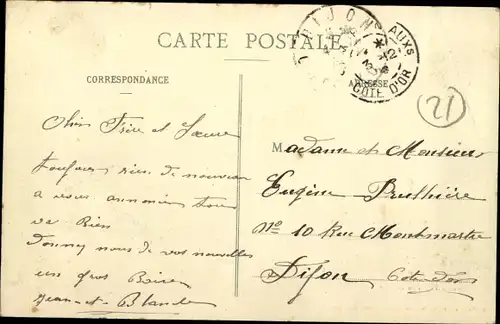 CARTE POSTALE
DIJON
CÔTE D'OR
CORRESPONDANCE
ADRESSE
21
Cher Frère et Soeur
toujours rien de nouveau
a vous annoncer tout
va Bien
Donnez nous de vos nouvelles
un gros Baiser
Jean et Blanche
Madame et Monsieur
Eugène
No 10 Rue Montmartre
Dijon Cote d'or